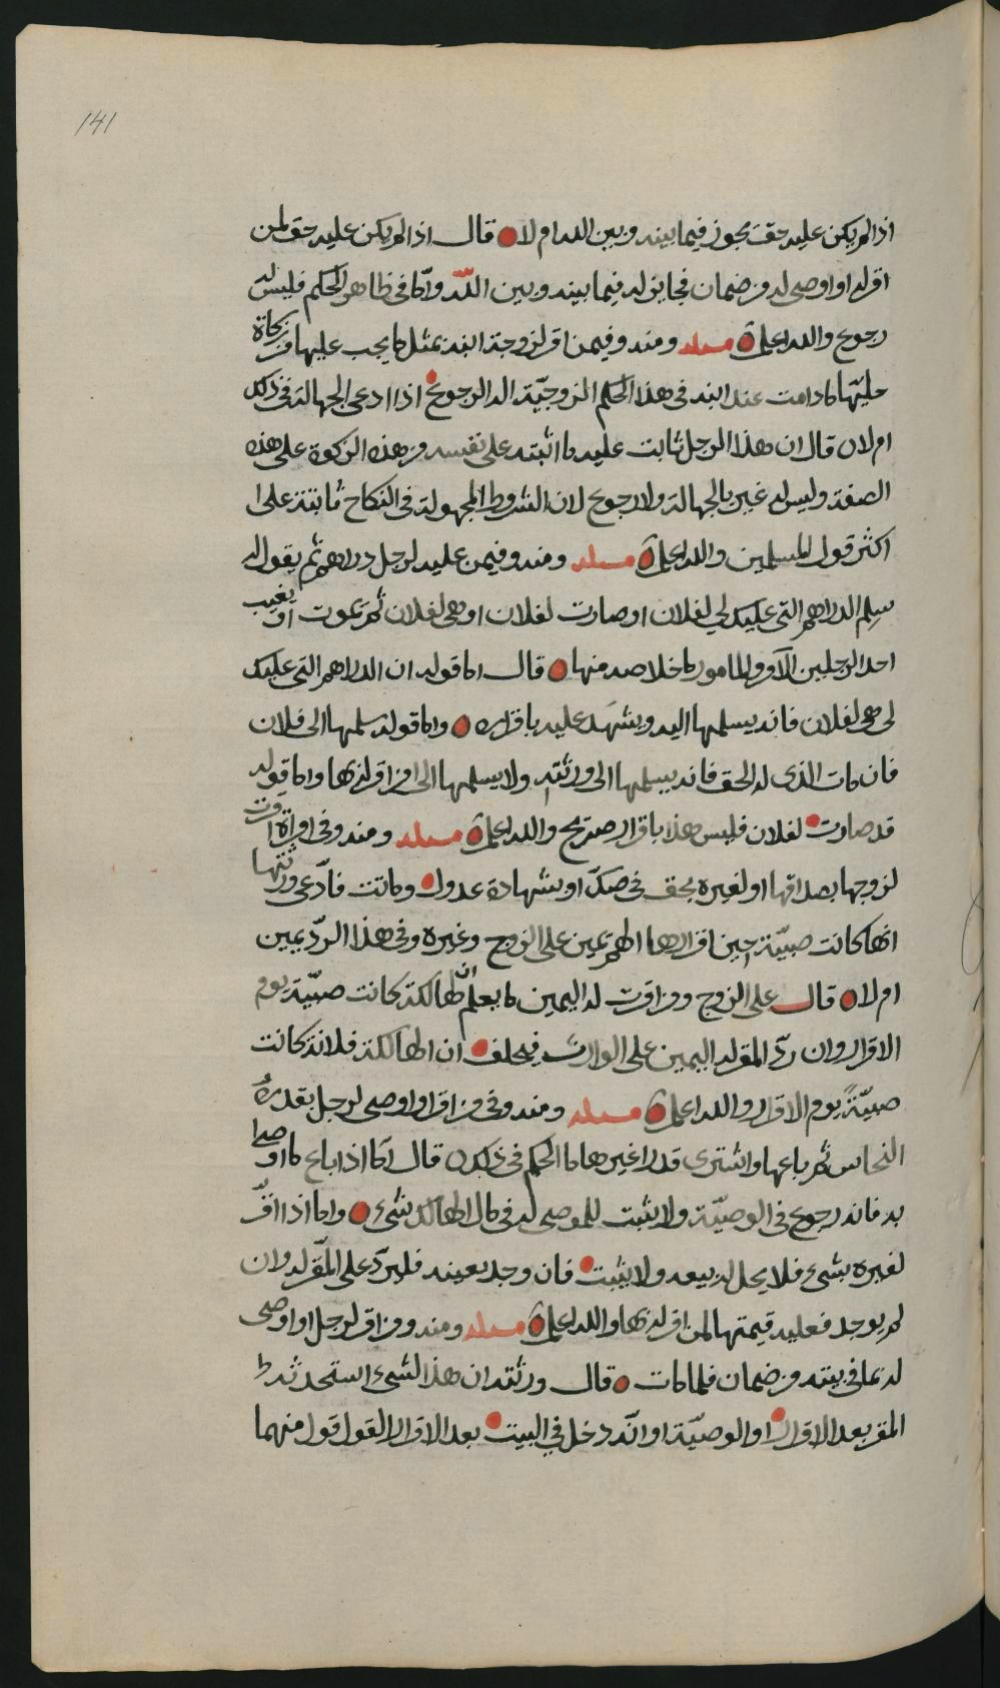 141
اذا لم يكن عليه حق يجوز فيما بينه وبين الله ام لا قال اذا لم يكن عليه حق لمن
اقر له او اوصى له من ضمان فجائز له فيما بينه وبين الله واما في ظاهر الحكم فليس له
رجوع والله اعلم مسئلة ومنه وفيمن اقر لزوجة ابنه بمثل ما يجب عليها من زكاة
حليّها ما دامت عند ابنه في هذا الحكم الزوجيّة اله الرجوع اذا ادعى الجهالة في ذلك
ام لا قال ان هذا الرجل ثابت عليه ما اثبته على نفسه من هذه الزكوة على هذه
الصفة وليس له غير بالجهالة ولا رجوع لان الشروط المجهولة في النكاح ثابتة على
اكثر قول المسلمين والله اعلم مسئلة ومنه وفيمن عليه لرجل دراهم ثم يقول له
سلم الدراهم التي عليك لي لفلان او صارت لفلان او هي لفلان ثم يموت او يغيب
احد الرجلين الآمر والمامور ما خلاصه منها قال اما قوله ان الدراهم التي عليك
لي هي لفلان فانه يسلمها اليه ويشهد عليه باقراره واما قوله سلمها الى فلان
فان مات الذي له الحق فانه يسلمها الى ورثته ولا يسلمها الى من اقر له بها واما قوله
قد صارت لفلان فليس هذا باقرار صريح والله اعلم مسئلة ومنه وفي امراة اقرت
لزوجها بصداقها او لغيره بحق في صك او بشهادة عدول وماتت فادّعى ورثتها
انها كانت صبيّة حين اقرارها الهم يمين على الزوج وغيره وفي هذا الردّ يمين
ام لا قال على الزوج ومن اقرت له اليمين ما يعلم ان الهالكة كانت صبيّة يوم
الاقرار وان ردّ المقر له اليمين على الوارث فيحلف ان الهالكة فلانة كانت
صبيّةً يوم الاقرار والله اعلم مسئلة ومنه وفي من اقر او اوصى لرجل بقدره
النحاس ثم باعها واشترى قدرا غيرها ما الحكم في ذلك قال اما اذا باع ما اوصى
به فانه رجوع في الوصيّة ولا يثبت للموصى له في مال الهالك شيء واما اذا اقرّ
لغيره بشيء فلا يحل له بيعه ولا يثبت فان وجد بعينه فليردّ على المقر له وان
لم يوجد فعليه قيمتها لمن اقر له بها والله اعلم مسئلة ومنه ومن اقر لرجل او اوصى
له بما في بيته من ضمان فلما مات قال ورثته ان هذا الشيء استحدثه
المقر بعد الاقرار او الوصيّة او انّه دخل في البيت بعد الاقرار القول قول منهما